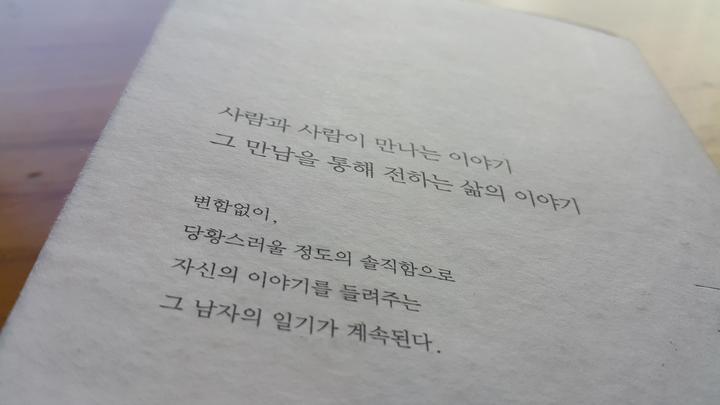 사람과 사람이 만나는 이야기
그 만남을 통해 전하는 삶의 이야기
변함없이,
당황스러울 정도의 솔직함으로
자신의 이야기를 들려주는
그 남자의 일기가 계속된다.